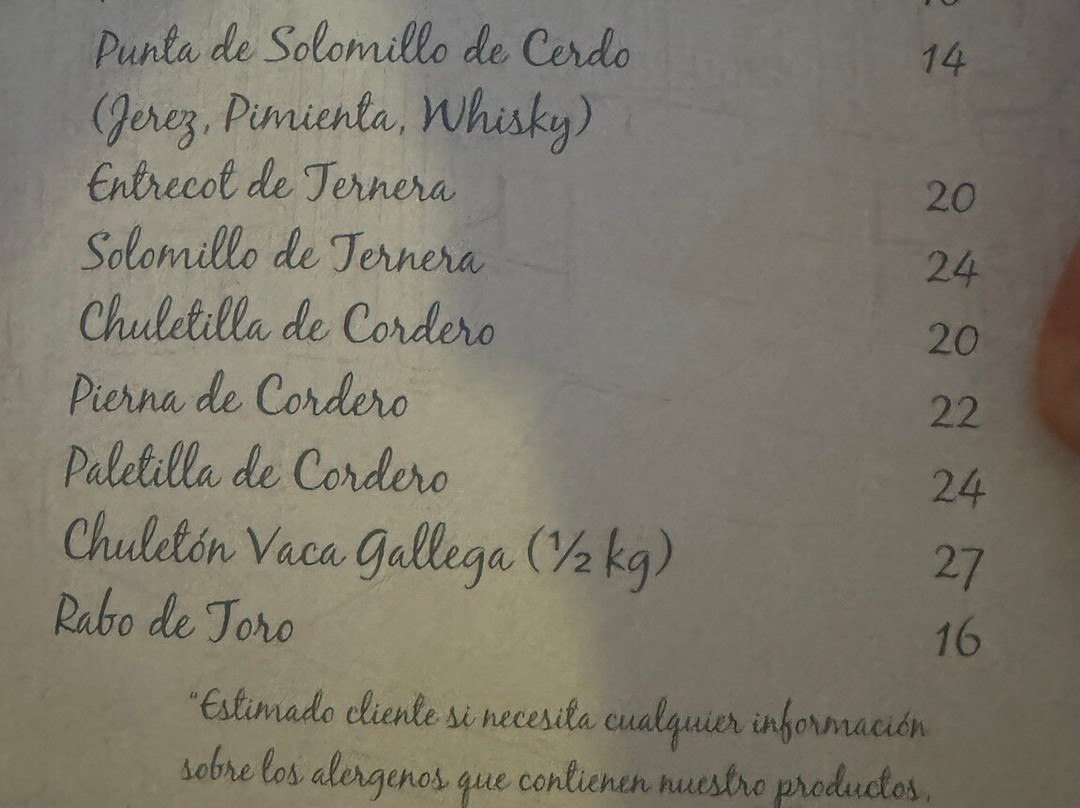 Punta de Solomillo de Cerdo 14
(Jerez, Pimienta, Whisky)
Entrecot de Ternera 20
Solomillo de Ternera 24
Chuletilla de Cordero 20
Pierna de Cordero 22
Paletilla de Cordero 24
Chuletón Vaca Gallega (½ kg) 27
Rabo de Toro 16
"Estimado cliente si necesita cualquier información
sobre los alergenos que contienen nuestro productos.